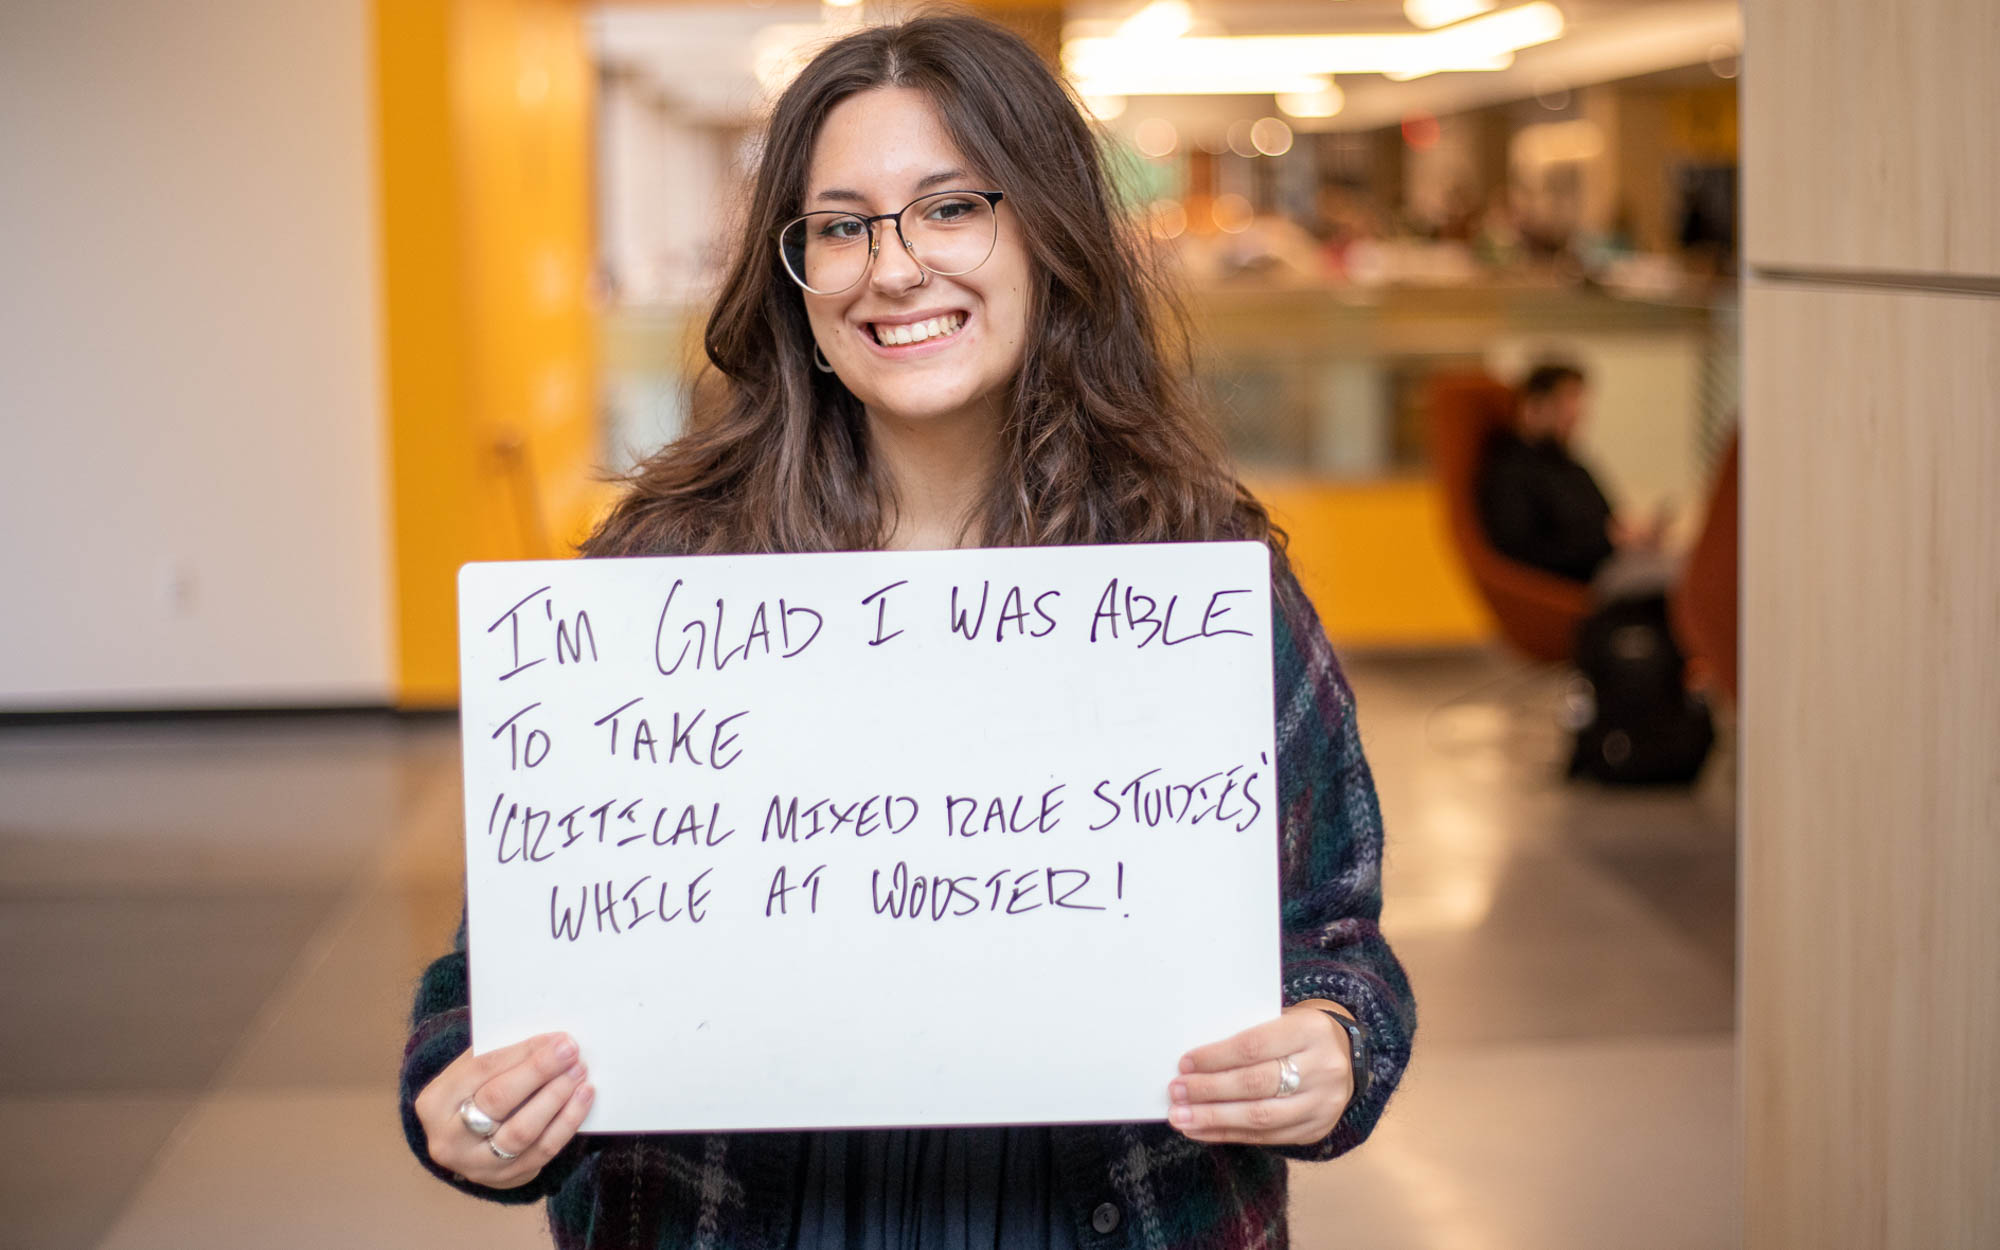 I'M GLAD I WAS ABLE
TO TAKE
'CRITICAL MIXED RACE STUDIES'
WHILE AT WOOSTER!